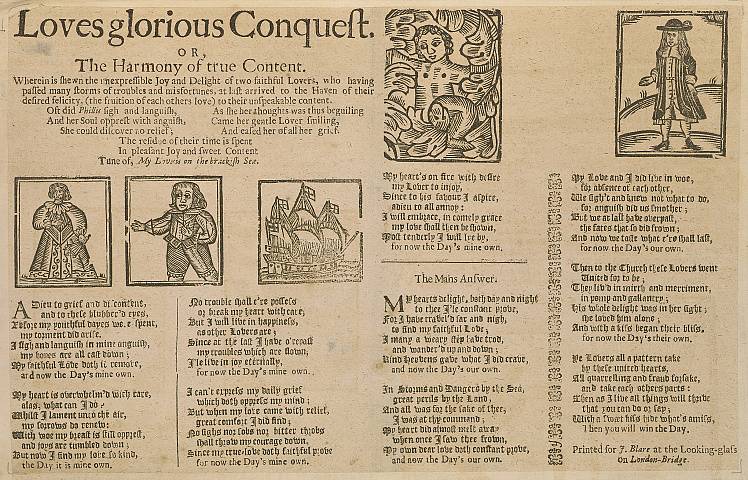 Loves glorious Conquest.
OR,
The Harmony of true Content.
Wherein is shewn the unexpressible Joy and Delight of two faithful Lovers, who having
passed many storms of troubles and misfortunes, at last arrived to the Haven of their
desired felicity, (the fruition of each others love) to their unspeakable content.
Oft did Phillis sigh and languish,
And her Soul opprest with anguish,
She could discover no relief;
As she her thoughts was thus beguiling
Came her gentle Lover smiling,
And eased her of all her grief.
The residue of their time is spent
In pleasant Joy and sweet Content
Tune of, My Love is on the brackish Sea.
ADieu to grief and discontent,
and to these blubber'd eyes,
Before my youthful dayes were spent,
my torment did arise.
I sigh and languish in mine anguish,
my hopes are all cast down;
My faithful Love doth it remove,
and now the Day's mine own.
My heart is overwhelm'd with care,
alas, what can I do?
Whilst I lament unto the air,
my sorrows do renew:
With woe my breast is still opprest,
and joys are tumbled down;
But now I find my love so kind,
the Day it is mine own.
No trouble shall e're possess
or break my heart with care;
But I will live in happiness,
as other Lovers are;
Since at the last I have o'repast
my troubles which are flown,
I'le live in joy eternally,
for now the Day's mine own.
I can't express my daily grief
which doth oppress my mind;
But when my love came with relief,
great comfort I did find;
No sighs nor sobs nor bitter throbs
shall throw my courage down,
Since my true-love doth faithful prove
for now the Day's mine own.
My heart's on fire with desire
my Lover to injoy,
Since to his favour I aspire,
adieu to all annoy:
I will embrace, in comely grace
my love shall then be shown,
Most tenderly I will live by,
for now the Day's mine own.
The Mans Answer.
MY hearts delight, both day and night
to thee I'le constant prove,
For I have travel'd far and nigh,
to find my faithful Love;
I many a weary step have trod,
and wander'd up and down;
Kind Heavens gave what I did crave,
and now the Day's our own.
In Storms and Dangers by the Sea,
great perils by the Land,
And all was for the sake of thee,
I was at thy command;
My heart did almost melt away
when once I saw thee frown,
My own dear love doth constant prove,
and now the Day's our own.
My Love and I did live in woe,
for absence of each other,
We sigh'd and knew not what to do,
for anguish did us smother;
But we at last have overpast,
the fates that so did frown;
And now we taste what e're shall last,
for now the Day's our own.
Then to the Church these Lovers went
United for to be;
They liv'd in mirth and merriment,
in pomp and gallantry;
His whole delight was in her sight;
she loved him alone;
And with a kiss began their bliss,
for now the Day's their own.
Ye Lovers all a pattern take
by these united hearts,
All quarrelling and fraud forsake,
and take each others parts:
Then as I live all things will thrive
that you can do or say;
With a sweet kiss hide what's amiss,
Then you will win the Day.
Printed for J. Blare at the Looking-glass
on London-Bridge.